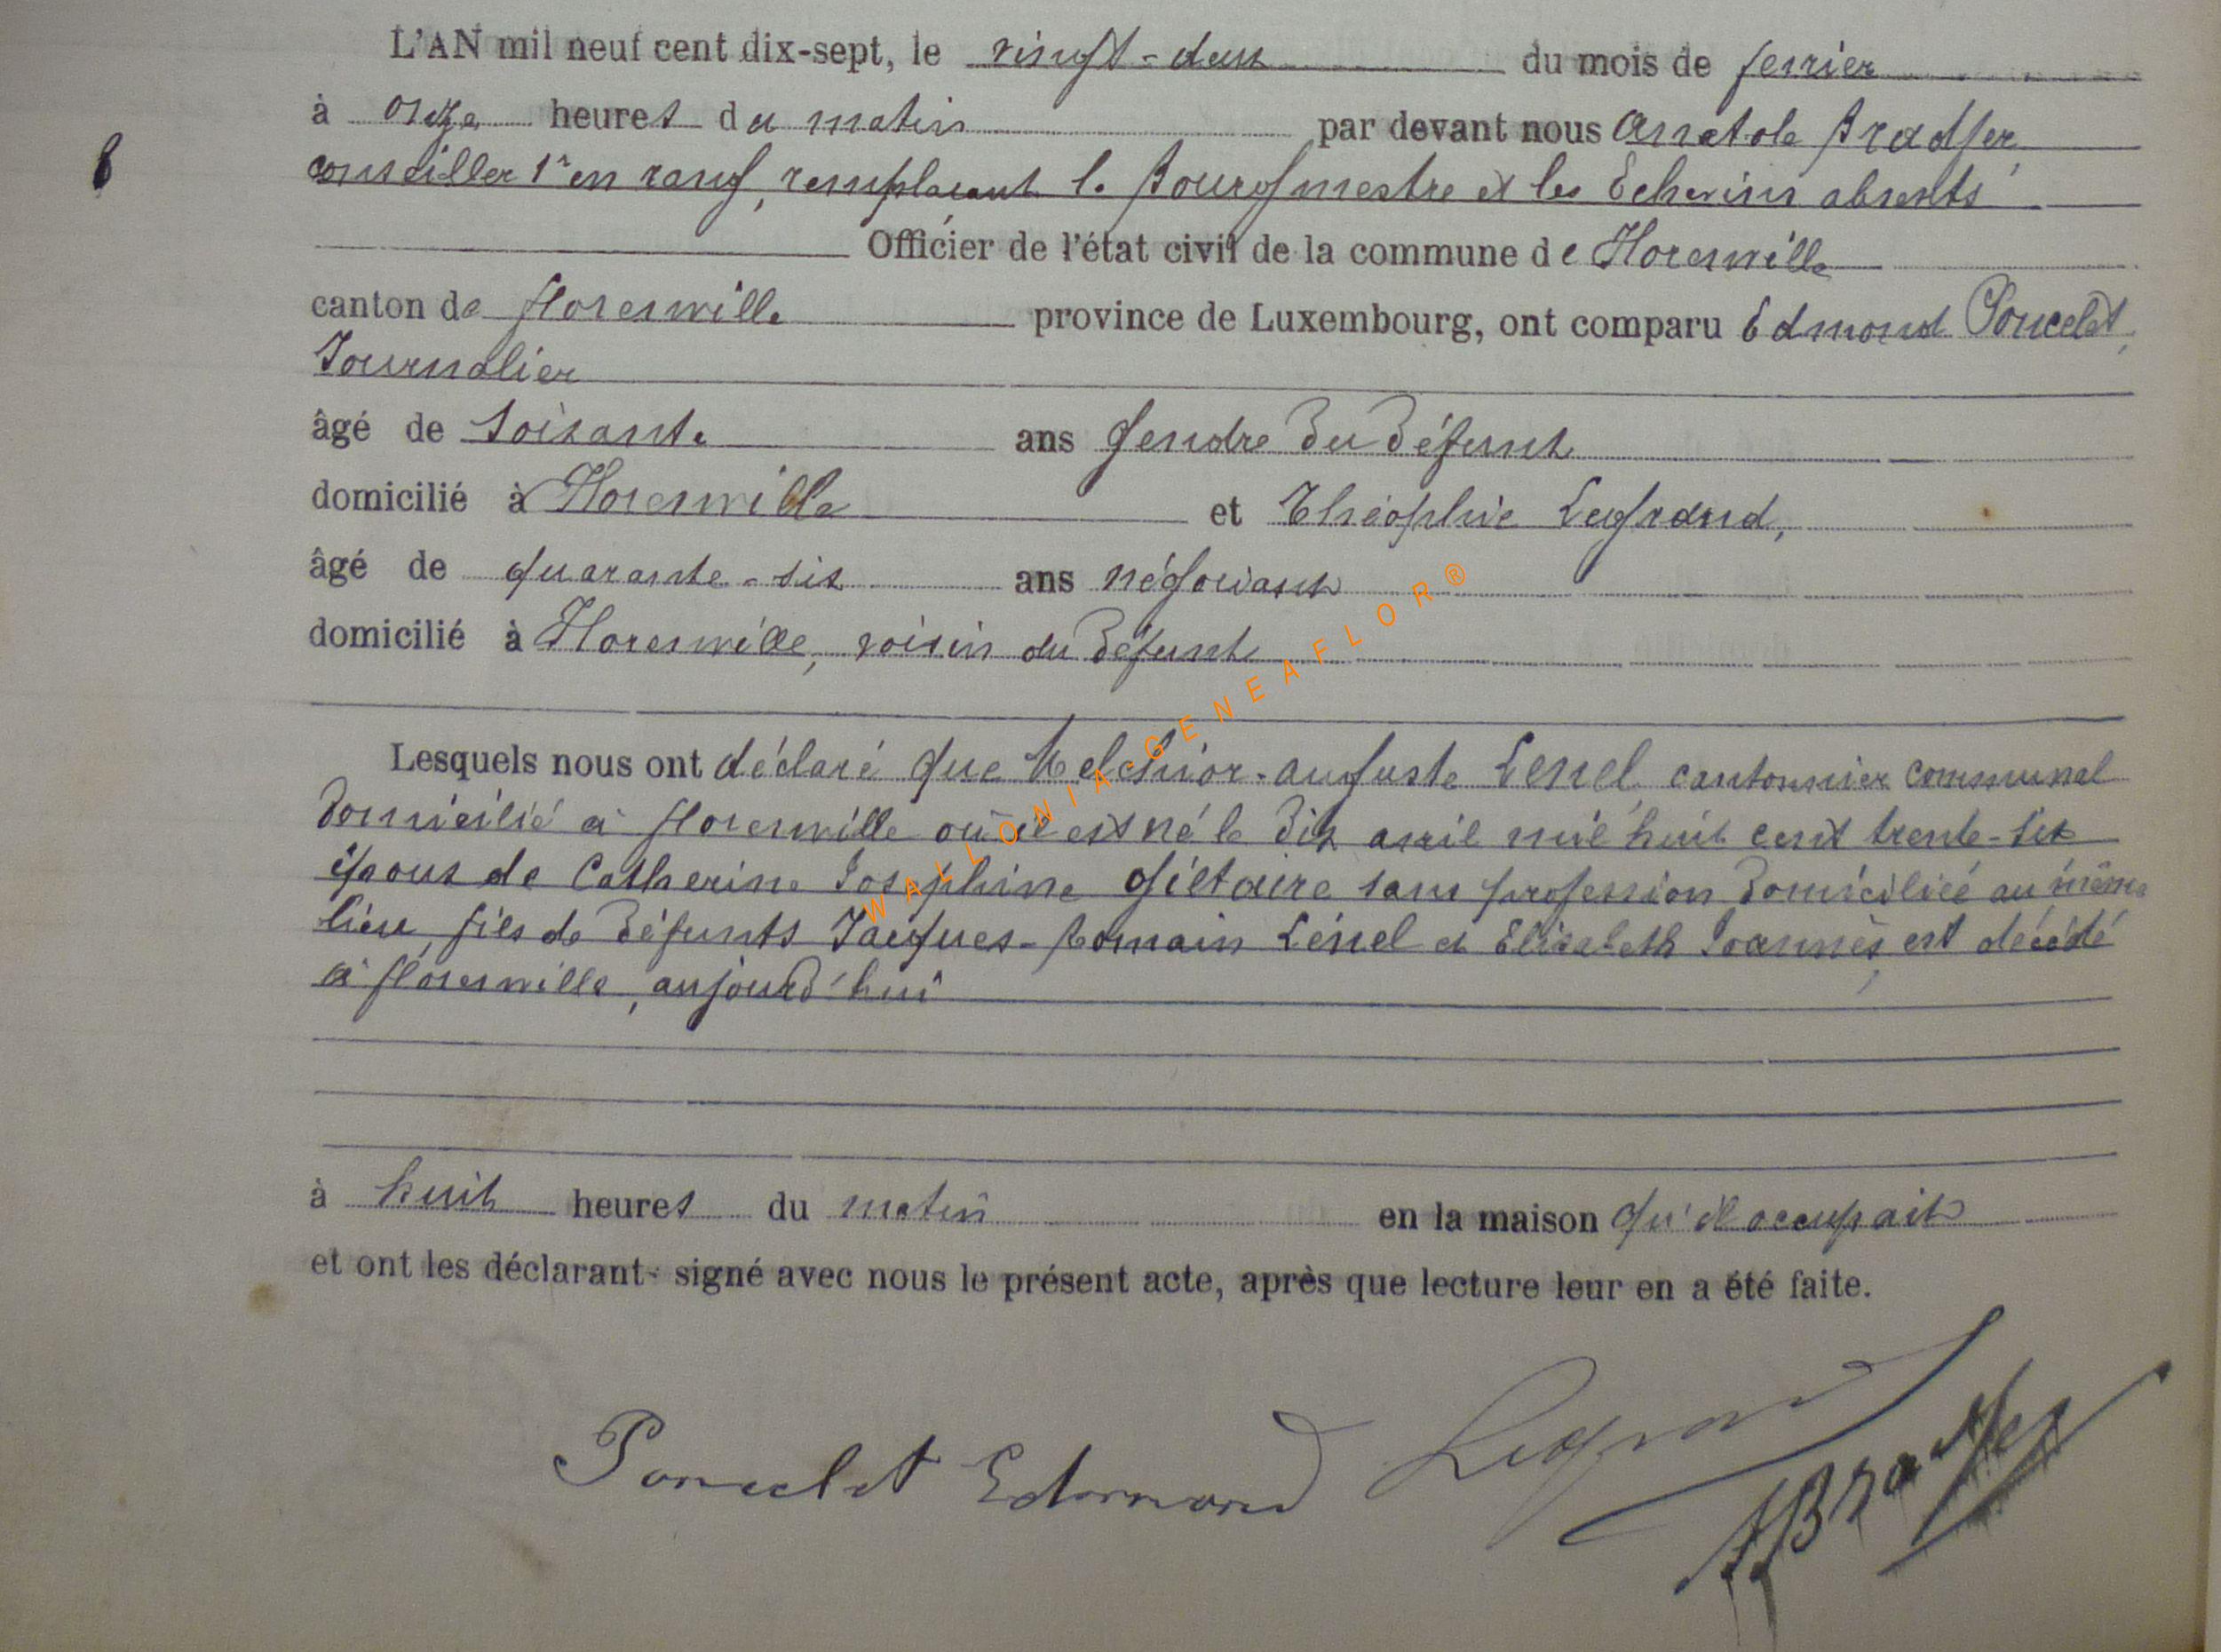 L'AN mil neuf cent dix-sept, le vingt-deux du mois de fevrier
à onze heures du matin par devant nous Anatole Bradfer,
8
conseiller 1er en rang, remplacant le Bourgmestre et les Echevins absents
Officier de l'état civil de la commune de Florenville
canton de Florenville province de Luxembourg, ont comparu Edmond Poncelet,
Journalier
âgé de soixante ans gendre du défunt
domicilié à Florenville et Théophile Legrand,
âgé de quarante-six ans négociant
domicilié à Florenville, voisin du défunt
Lesquels nous ont déclaré que Melchior-Auguste Lenel, cantonnier communal
domicilié à Florenville où il est né le dix avril mil huit cent trente-six
époux de Catherine Josephine Giétaire sans profession domiciliée au même
lieu, fils de défunts Jacques-Romain Lénel et Elisabeth Joannès, est décédé
à Florenville, aujourd'hui
à huit heures du matin en la maison qu'il occupait
et ont les déclarant signé avec nous le présent acte, après que lecture leur en a été faite.
Poncelet Edmond Legrand ABradfer
WALLONIA-GENEAFLOR®